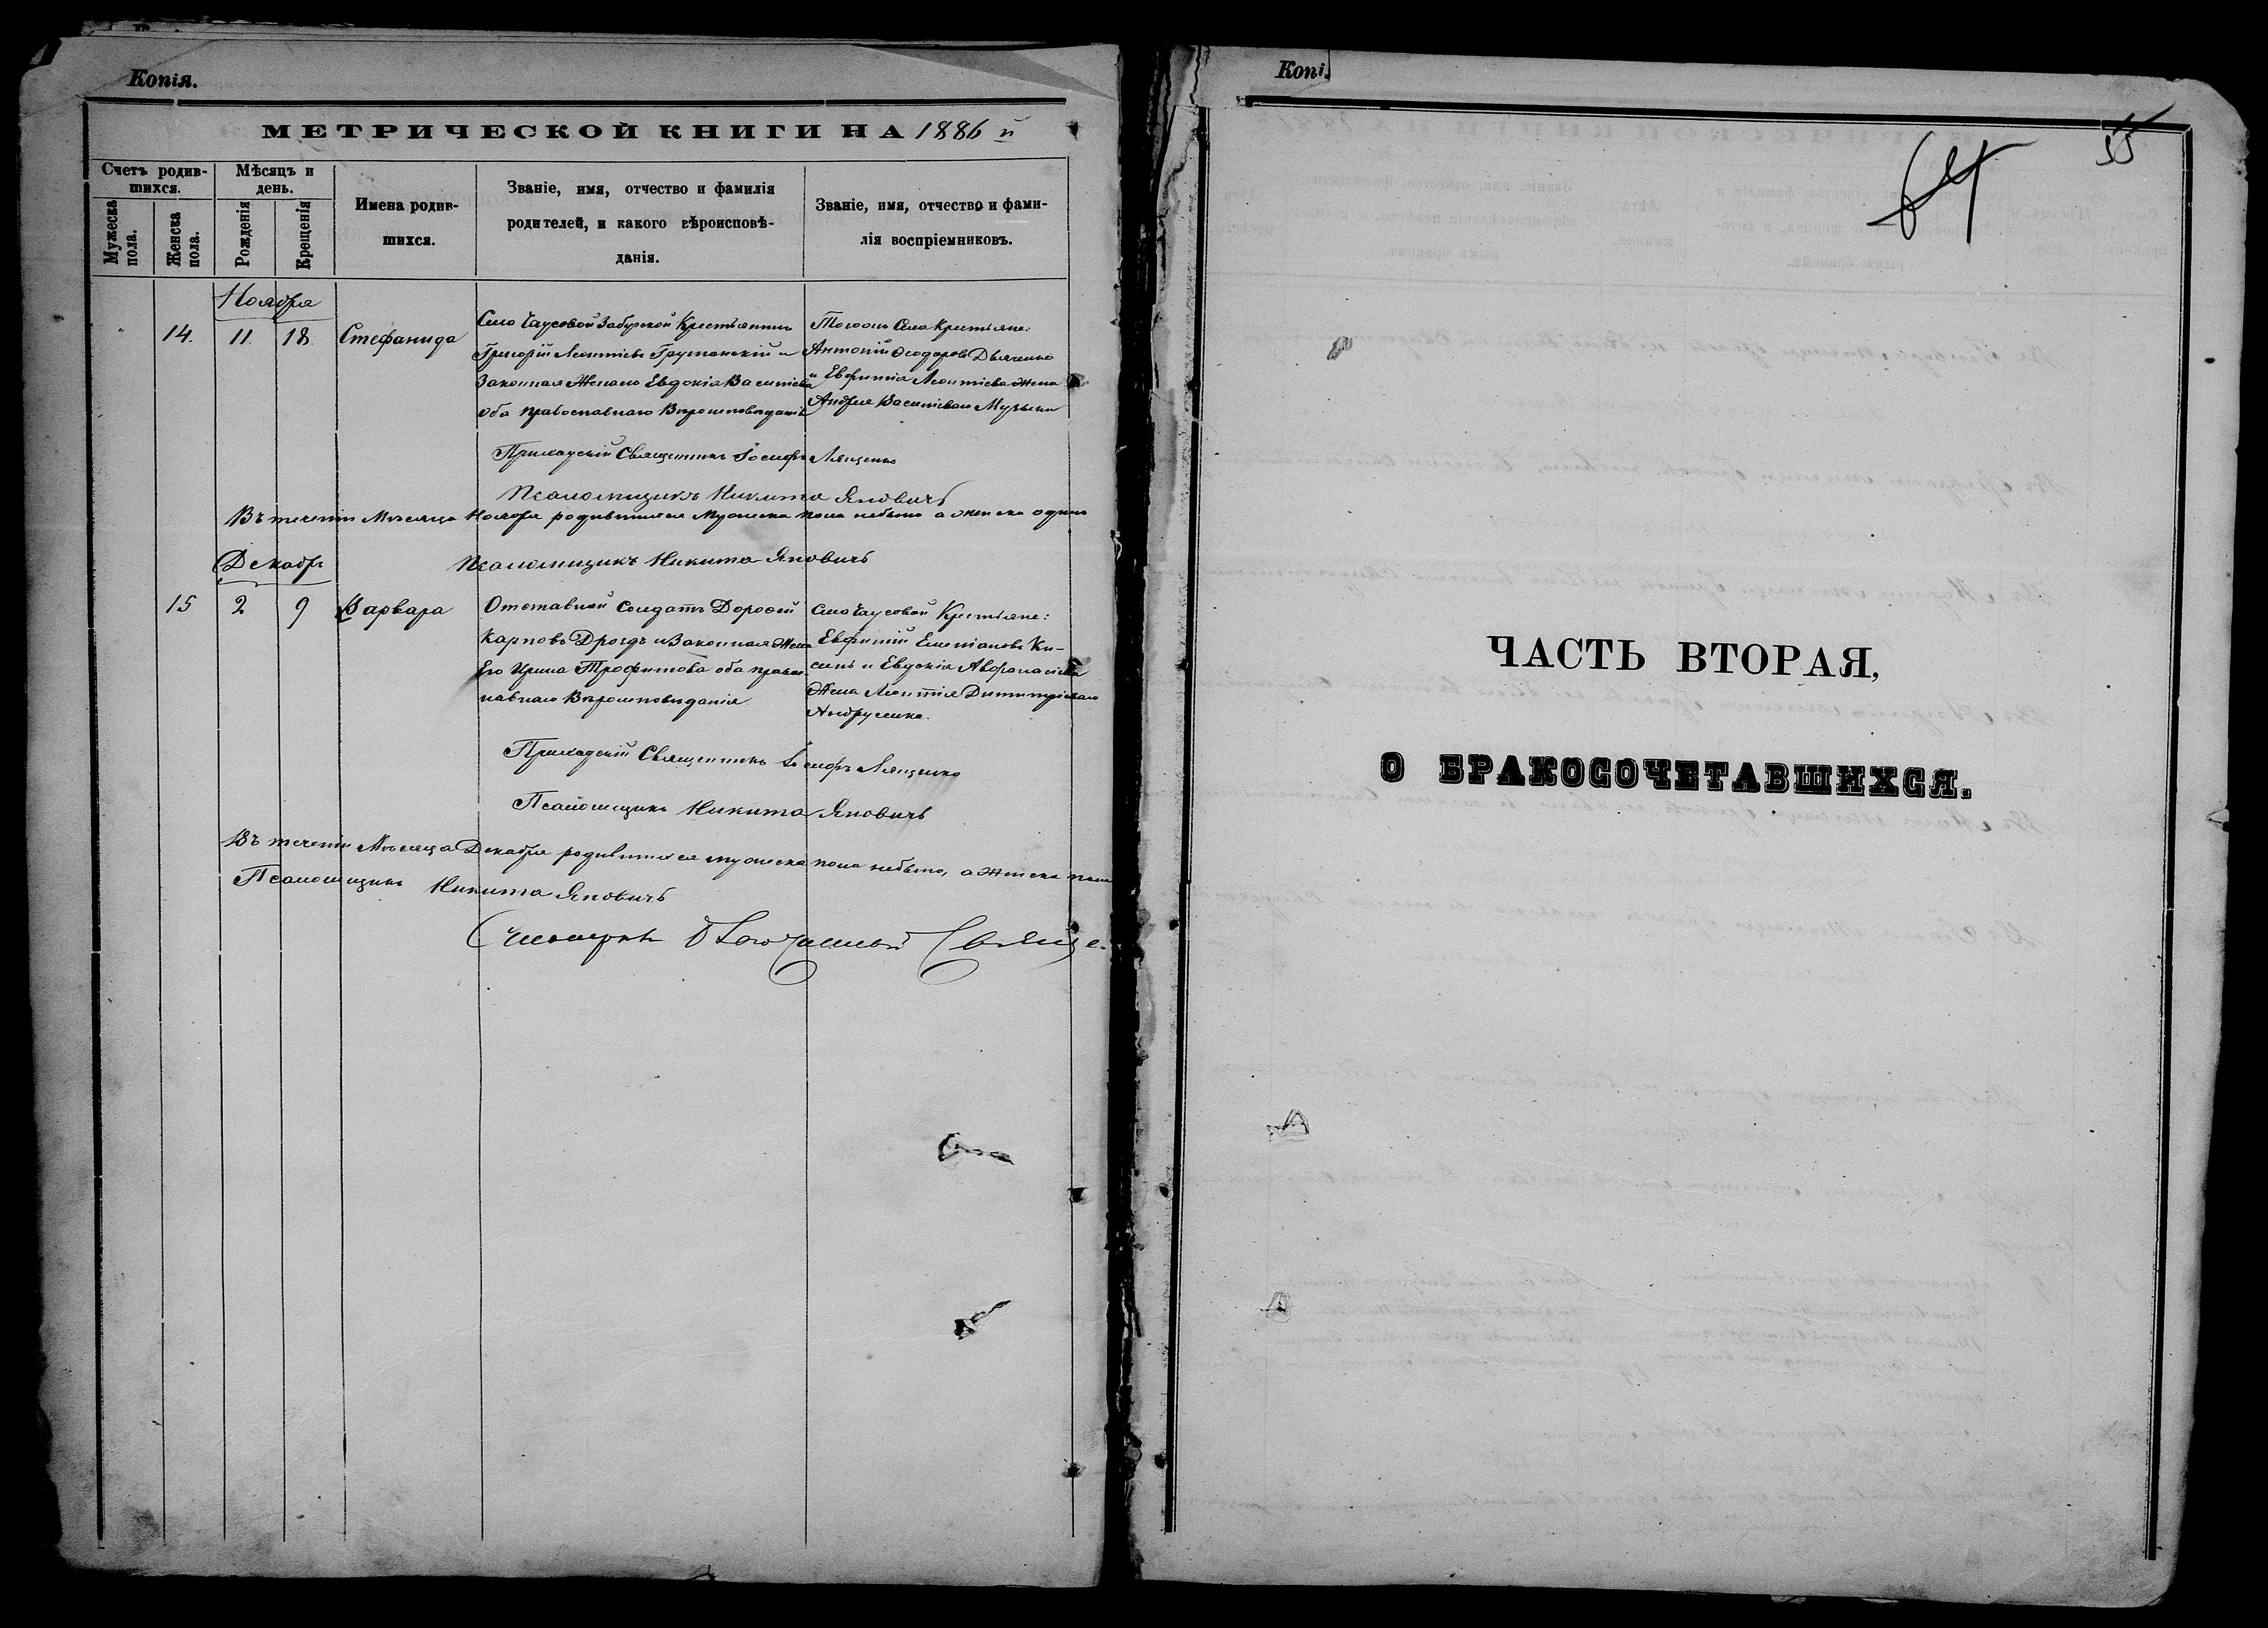 Копія.
МЕТРИЧЕСКОЙ КНИГИ НА 1886 й
Счетъ родив-
шихся.
Мѣсяцъ и
день.
Мужеска
пола.
Женска
пола.
Рожденія
Крещенія
Имена родив-
шихся.
Званіе, имя, отчество и фамилія
родителей, и какого вѣроисповѣ-
данія.
Званіе, имя, отчество и фами-
лія воспріемниковъ.
Ноября
14. 11. 18. Стефанида
Села Чаусовой Забугской Крестьянинъ
Григорій Леонтіевъ и
Законная Жена его Евдокія Василіева
оба православнаго Вѣроисповѣданія
Тогожъ Села Крестьяне:
Антоній Ѳеодоровъ Дьяченко
и Евфимія Леонтіева жена
Андрея Василіеваго Музыки
Приходскій Священникъ Іосифъ Лященко
Псаломщикъ Никита Яновичъ
Въ теченіи Мѣсяца Ноября родившихся Мужеска пола небыло а женска одинъ
Псаломщикъ Никита Яновичъ
Декабр
15 2 9 Варвара
Отставной Солдатъ Дороѳей
Карповъ Дроздъ и Законная Жена
Его Ирина Трофимова оба право-
славнаго Вѣроисповѣданія
Села Чаусовой Крестьяне:
Евфимій
и Евдокія
Жена Леонтія Димитріеваго
Приходскій Священникъ Іосифъ Лященко
Псаломщикъ Никита Яновичъ
Въ теченіи Мѣсяца Декабря родившихся мужеска пола небыло, а Женска пола
Псаломщикъ Никита Яновичъ
Копі
55
ЧАСТЬ ВТОРАЯ,
О БРАКОСОЧЕТАВШИХСЯ.